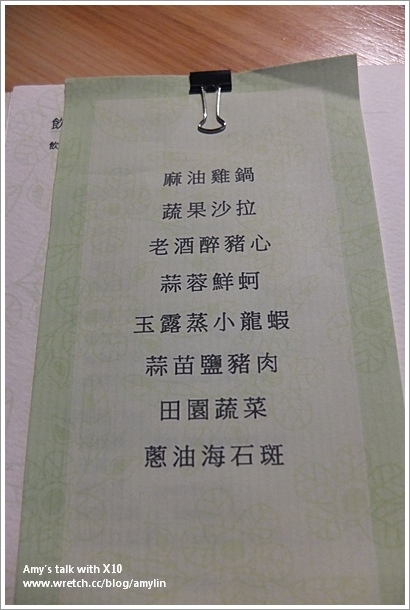 飲
飲
麻油雞鍋
蔬果沙拉
老酒醉豬心
蒜蓉鮮蚵
玉露蒸小龍蝦
蒜苗鹽豬肉
田園蔬菜
蔥油海石斑
Amy's talk with X10
www.wretch.cc/blog/amylin